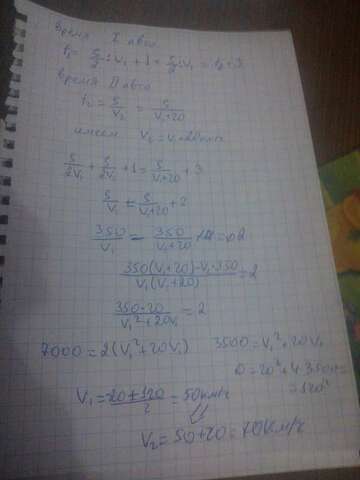 Время I авто
t₁ = S/2 : V₁ + 1 + S/2 : V₁ = t₂ + 3
время II авто
t₂ = S/V₂ = S/(V₁+20)
имеем V₂ = V₁+20км/ч
S/2V₁ + S/2V₁ + 1 = S/(V₁+20) + 3
S/V₁ = S/(V₁+20) + 2
350/V₁ - 350/(V₁+20) = 2
(350(V₁+20) - V₁·350)/(V₁(V₁+20)) = 2
350·20/(V₁²+20V₁) = 2
7000 = 2(V₁²+20V₁) 3500 = V₁²+20V₁
D = 20²+4·3500 =
= 120²
V₁ = (-20+120)/2 = 50км/ч
V₂ = 50+20 = 70км/ч